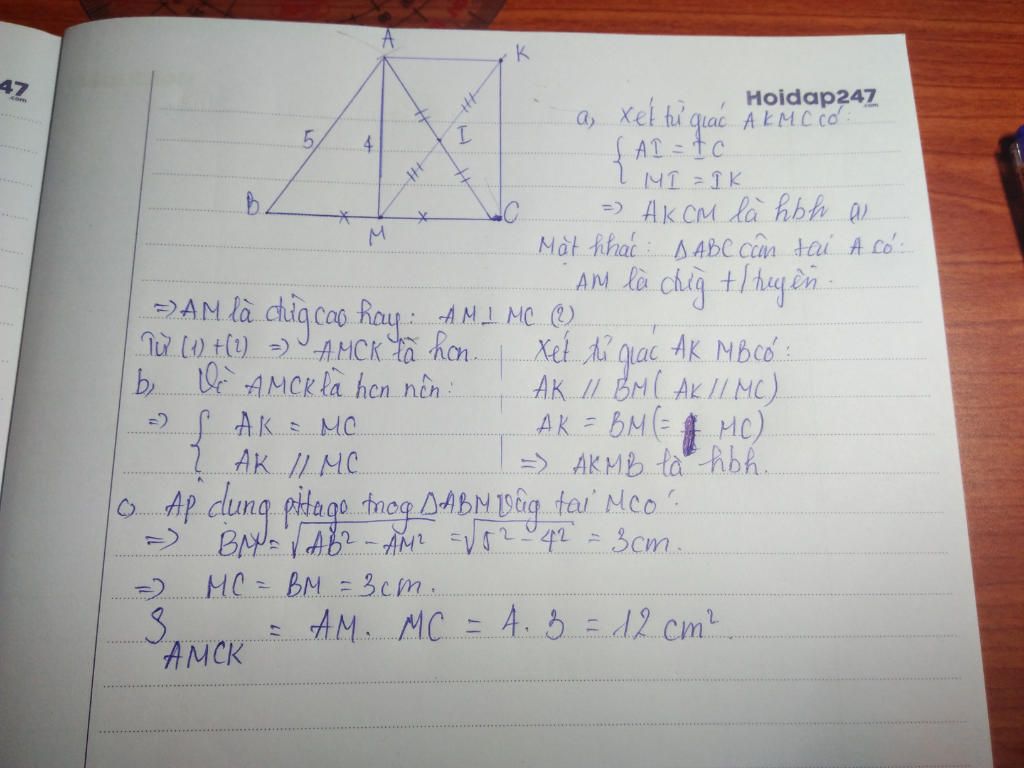 47
.com
Hoidap247
.com
A
K
5
4
I
B
M
C
a, Xét tứ giác AKMC có:
AI = IC
MI = IK
=> AKCM là hbh (1)
Mặt khác: ΔABC cân tại A có:
AM là đường t/tuyến.
=> AM là đường cao hay: AM ⊥ MC (2)
Từ (1)+(2) => AMCK là hcn.
b, Vì AMCK là hcn nên:
=> { AK = MC
AK // MC
Xét tứ giác AK MB có:
AK // BM ( AK // MC)
AK = BM (= MC)
=> AKMB là hbh.
c, Áp dụng pitago trog ΔABM vuông tại M có:
=> BM = √AB² - AM² = √5² - 4² = 3cm.
=> MC = BM = 3cm.
S AMCK = AM. MC = 4.3 = 12 cm².